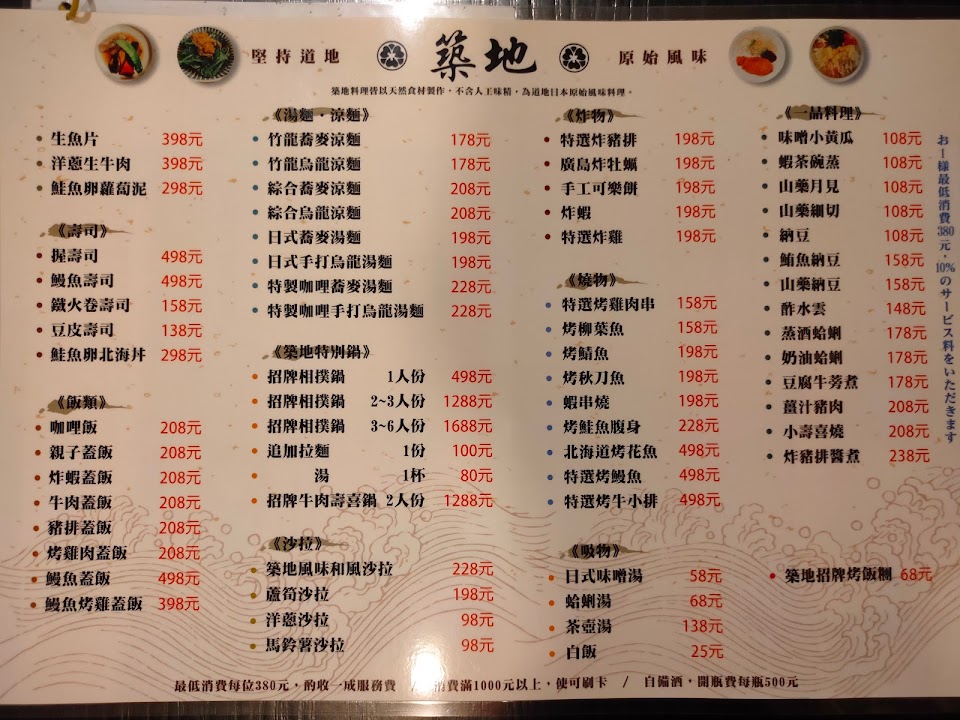 堅持道地
築地
原始風味
築地料理皆以天然食材製作，不含人工味精，為道地日本原始風味料理。
生魚片 398元
洋蔥生牛肉 398元
鮭魚卵蘿蔔泥 298元
《壽司》
握壽司 498元
鰻魚壽司 498元
鐵火卷壽司 158元
豆皮壽司 138元
鮭魚卵北海丼 298元
《飯類》
咖哩飯 208元
親子蓋飯 208元
炸蝦蓋飯 208元
牛肉蓋飯 208元
豬排蓋飯 208元
烤雞肉蓋飯 208元
鰻魚蓋飯 498元
鰻魚烤雞蓋飯 398元
《湯麵・涼麵》
竹龍蕎麥涼麵 178元
竹龍烏龍涼麵 178元
綜合蕎麥涼麵 208元
綜合烏龍涼麵 208元
日式蕎麥湯麵 198元
日式手打烏龍湯麵 198元
特製咖哩蕎麥湯麵 228元
特製咖哩手打烏龍湯麵 228元
《築地特別鍋》
招牌相撲鍋 1人份 498元
招牌相撲鍋 2~3人份 1288元
招牌相撲鍋 3~6人份 1688元
追加拉麵 1份 100元
湯 1杯 80元
招牌牛肉壽喜鍋 2人份 1288元
《沙拉》
築地風味和風沙拉 228元
蘆筍沙拉 198元
洋蔥沙拉 98元
馬鈴薯沙拉 98元
《炸物》
特選炸豬排 198元
廣島炸牡蠣 198元
手工可樂餅 198元
炸蝦 198元
特選炸雞 198元
《燒物》
特選烤雞肉串 158元
烤柳葉魚 158元
烤鯖魚 198元
烤秋刀魚 198元
蝦串燒 198元
烤鮭魚腹身 228元
北海道烤花魚 498元
特選烤鰻魚 498元
特選烤牛小排 498元
《吸物》
日式味噌湯 58元
蛤蜊湯 68元
茶壺湯 138元
白飯 25元
《一品料理》
味噌小黃瓜 108元
蝦茶碗蒸 108元
山藥月見 108元
山藥細切 108元
納豆 108元
鮪魚納豆 158元
山藥納豆 158元
酢水雲 148元
蒸酒蛤蜊 178元
奶油蛤蜊 178元
豆腐牛蒡煮 178元
薑汁豬肉 208元
小壽喜燒 208元
炸豬排醬煮 238元
築地招牌烤飯糰 68元
お一樣最低消費380元・10%のサービス料をいただきます
最低消費每位380元，酌收一成服務費 / 消費滿1000元以上，便可刷卡 / 自備酒，開瓶費每瓶500元